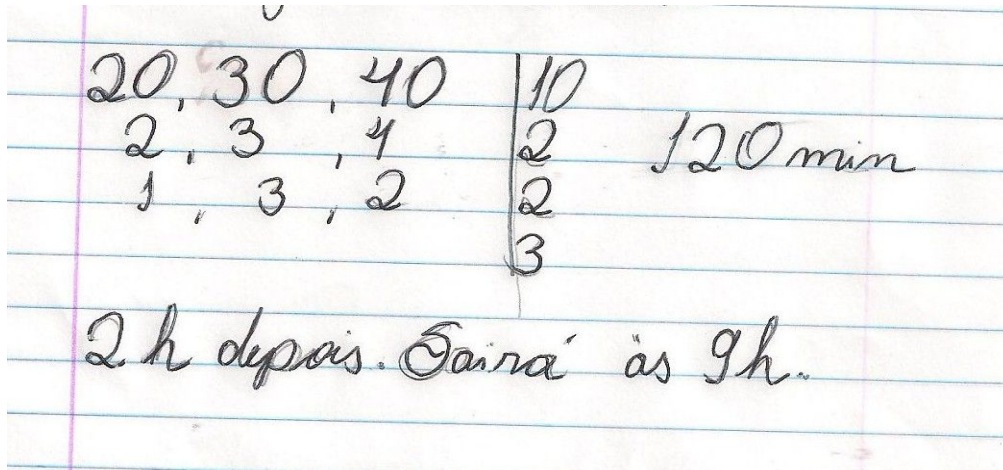 20, 30, 40 | 10
2, 3, 4 | 2 120 min
1, 3, 2 | 2
3
2h depois. Sairá às 9h.